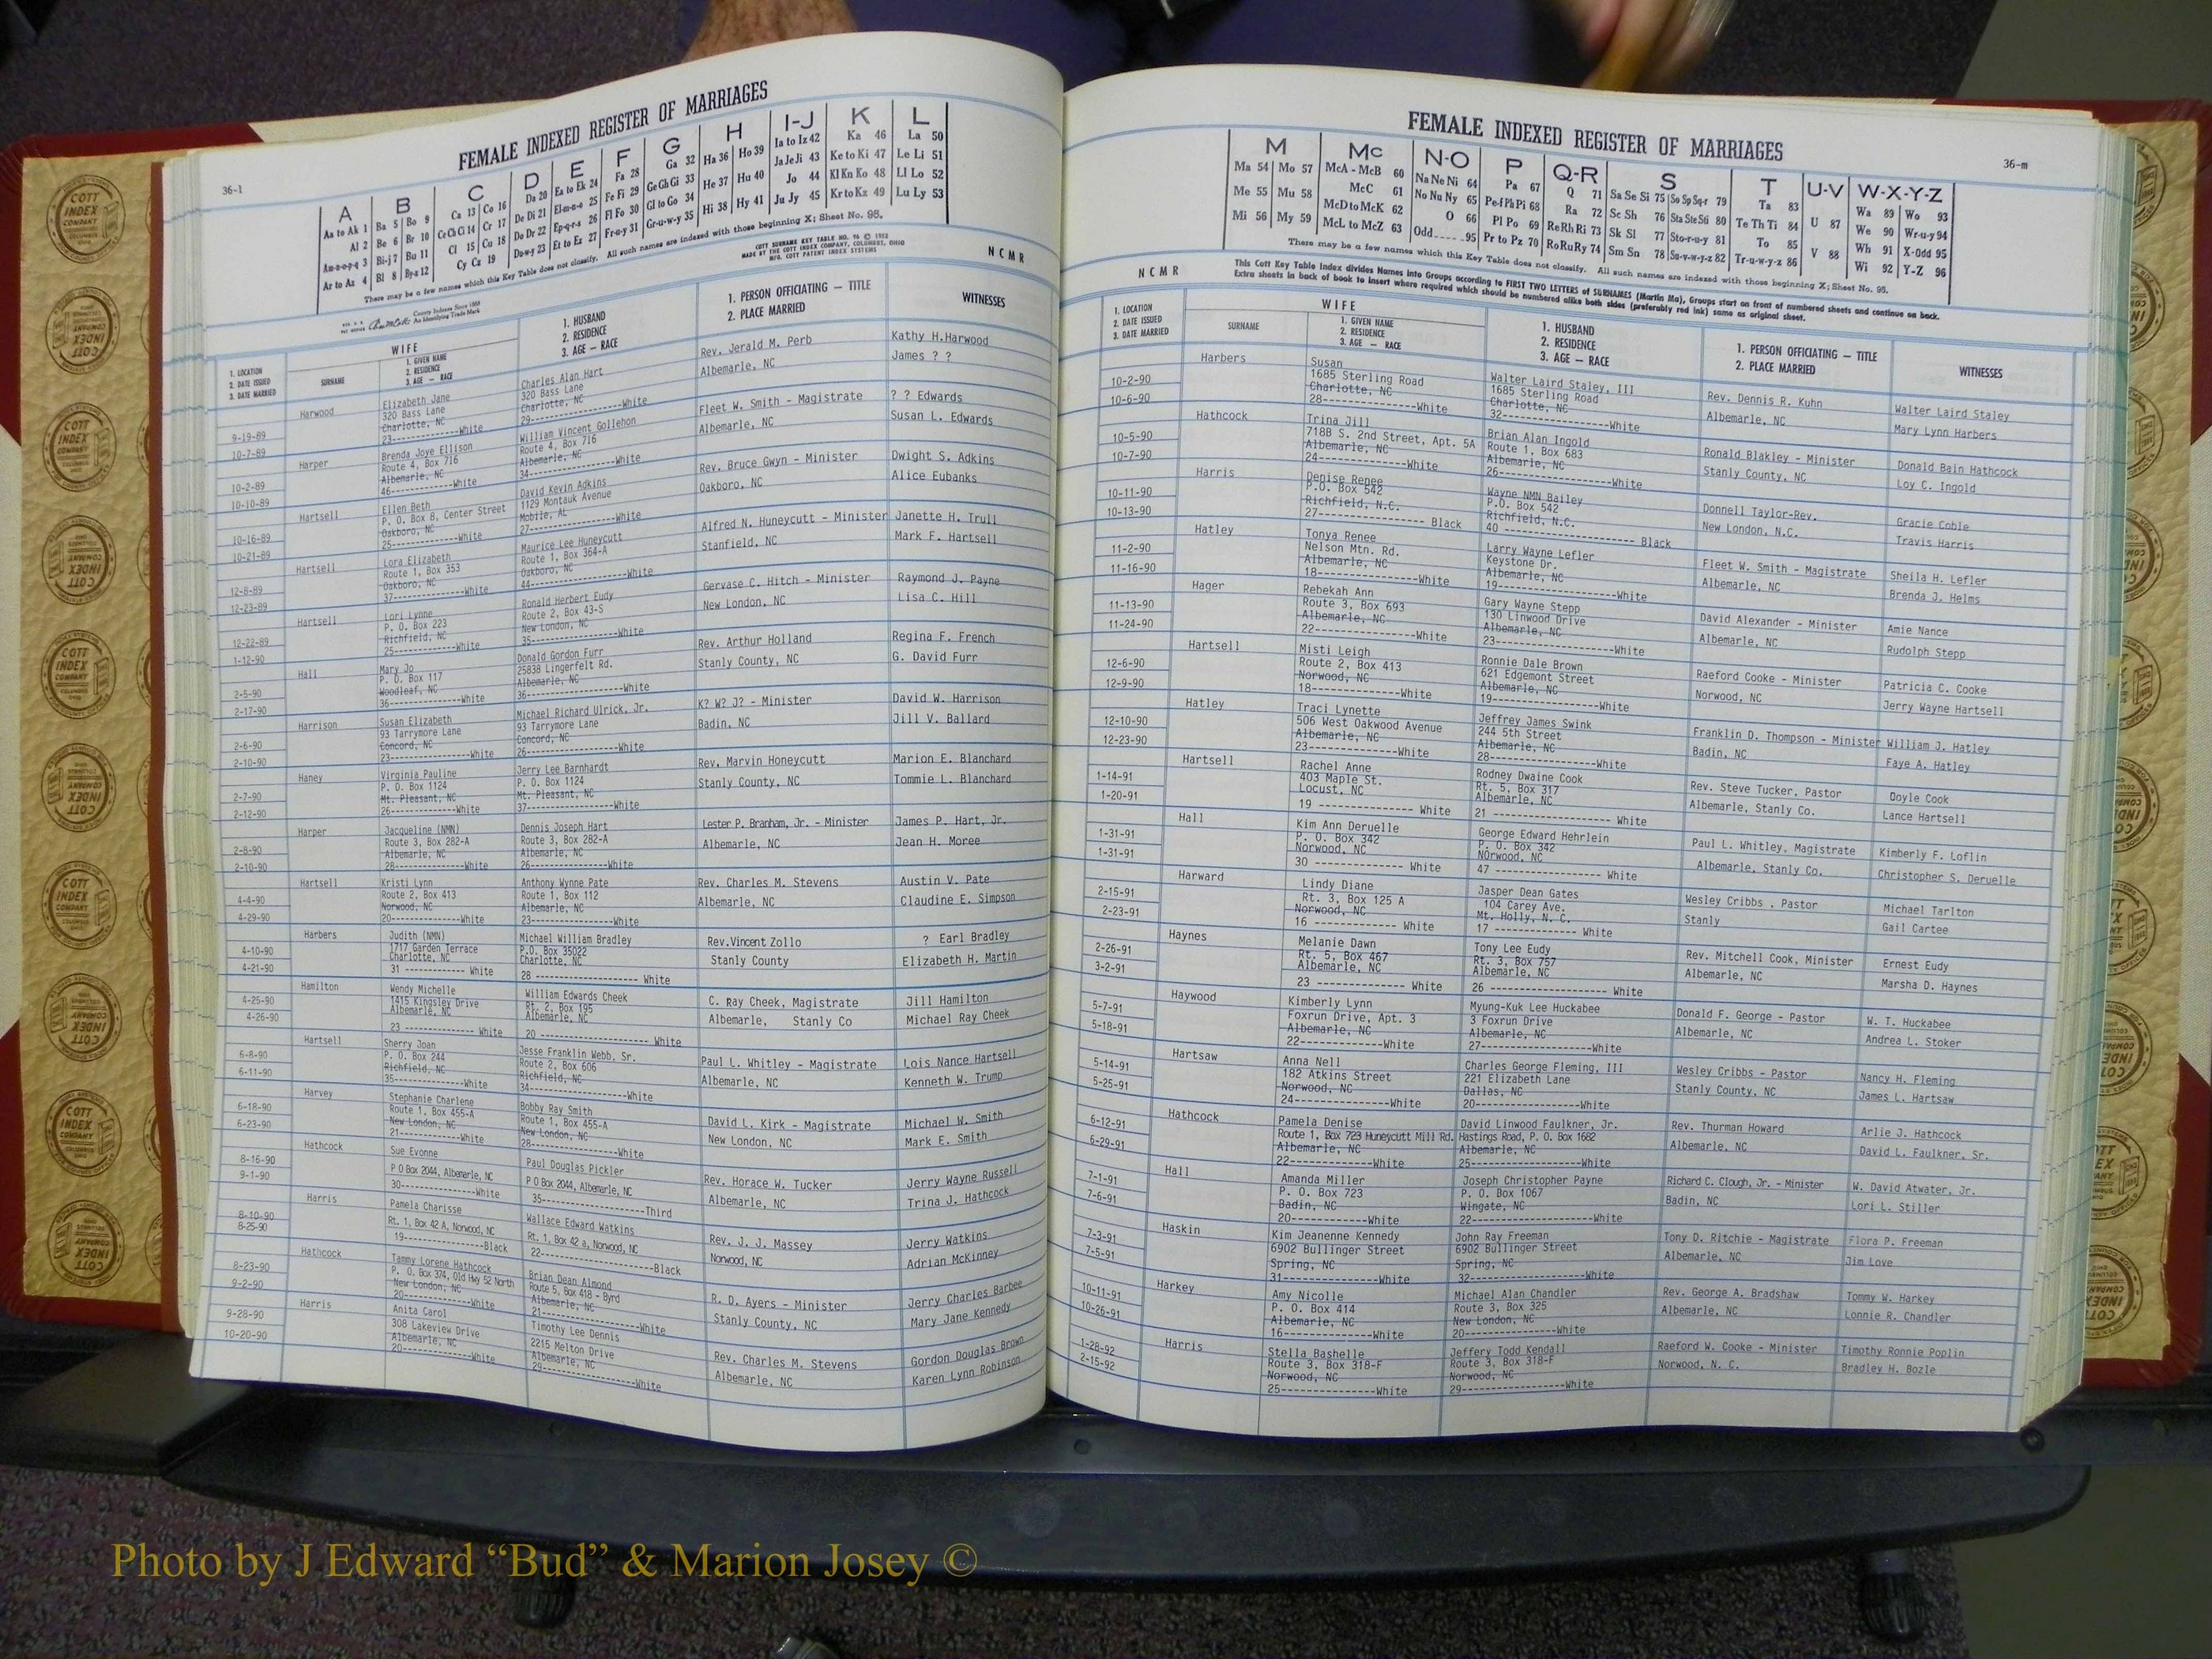 36-1
FEMALE INDEXED REGISTER OF MARRIAGES
A
Aa to Ak 1
Al 2
Am-n-o-p-q 3
Ar to Az 4
B
Ba 5 Bo 9
Be 6 Br 10
Bi-j 7 Bu 11
Bl 8 By-z 12
C
Ca 13 Co 16
Ce Ch Ci 14 Cr 17
Cl 15 Cu 18
Cy Cz 19
D
Da 20
De Di 21
Do Dr 22
Du-w-y 23
E
Ea to Ek 24
El-m-n-o 25
Ep-q-r-s 26
Et to Ez 27
F
Fa 28
Fe Fi 29
Fl Fo 30
Fr-u-y 31
G
Ga 32
Ge Gh Gi 33
Gl to Go 34
Gr-u-w-y 35
H
Ha 36 Ho 39
He 37 Hu 40
Hi 38 Hy 41
I-J
Ia to Iz 42
Ja Je Ji 43
Jo 44
Ju Jy 45
K
Ka 46
Ke to Ki 47
Kl Kn Ko 48
Kr to Kz 49
L
La 50
Le Li 51
Ll Lo 52
Lu Ly 53
There may be a few names which this Key Table does not classify. All such names are indexed with those beginning X; Sheet No. 95.
COTT SURNAME KEY TABLE NO. 96 © 1952
MADE BY THE COTT INDEX COMPANY, COLUMBUS, OHIO
MFG. COTT PATENT INDEX SYSTEMS
County Indexes Since 1888
An Identifying Trade Mark
NCMR
1. LOCATION
2. DATE ISSUED
3. DATE MARRIED
WIFE
SURNAME
1. GIVEN NAME
2. RESIDENCE
3. AGE — RACE
1. HUSBAND
2. RESIDENCE
3. AGE — RACE
1. PERSON OFFICIATING — TITLE
2. PLACE MARRIED
WITNESSES
9-19-89
10-7-89
Harwood
Elizabeth Jane
320 Bass Lane
Charlotte, NC
23------------White
Charles Alan Hart
320 Bass Lane
Charlotte, NC
29------------White
Rev. Jerald M. Perb
Albemarle, NC
Kathy H.Harwood
James ? ?
10-2-89
10-10-89
Harper
Brenda Joye Ellison
Route 4, Box 716
Albemarle, NC
46------------White
William Vincent Gollehon
Route 4, Box 716
Albemarle, NC
34------------White
Fleet W. Smith - Magistrate
Albemarle, NC
? ? Edwards
Susan L. Edwards
10-16-89
10-21-89
Hartsell
Ellen Beth
P. O. Box 8, Center Street
Oakboro, NC
25------------White
David Kevin Adkins
1129 Montauk Avenue
Mobile, AL
27------------White
Rev. Bruce Gwyn - Minister
Oakboro, NC
Dwight S. Adkins
Alice Eubanks
12-8-89
12-23-89
Hartsell
Lora Elizabeth
Route 1, Box 353
Oakboro, NC
37------------White
Maurice Lee Huneycutt
Route 1, Box 364-A
Oakboro, NC
44------------White
Alfred N. Huneycutt - Minister
Stanfield, NC
Janette H. Trull
Mark F. Hartsell
12-22-89
1-12-90
Hartsell
Lori Lynne
P. O. Box 223
Richfield, NC
25------------White
Ronald Herbert Eudy
Route 2, Box 43-S
New London, NC
35------------White
Gervase C. Hitch - Minister
New London, NC
Raymond J. Payne
Lisa C. Hill
2-5-90
2-17-90
Hall
Mary Jo
P. O. Box 117
Woodleaf, NC
36------------White
Donald Gordon Furr
25838 Lingerfelt Rd.
Albemarle, NC
36------------White
Rev. Arthur Holland
Stanly County, NC
Regina F. French
G. David Furr
2-6-90
2-10-90
Harrison
Susan Elizabeth
93 Tarrymore Lane
Concord, NC
23------------White
Michael Richard Ulrick, Jr.
93 Tarrymore Lane
Concord, NC
26------------White
K? W? J? - Minister
Badin, NC
David W. Harrison
Jill V. Ballard
2-7-90
2-12-90
Haney
Virginia Pauline
P. O. Box 1124
Mt. Pleasant, NC
26------------White
Jerry Lee Barnhardt
P. O. Box 1124
Mt. Pleasant, NC
37------------White
Rev. Marvin Honeycutt
Stanly County, NC
Marion E. Blanchard
Tommie L. Blanchard
2-8-90
2-10-90
Harper
Jacqueline (NMN)
Route 3, Box 282-A
Albemarle, NC
28------------White
Dennis Joseph Hart
Route 3, Box 282-A
Albemarle, NC
26------------White
Lester P. Branham, Jr. - Minister
Albemarle, NC
James P. Hart, Jr.
Jean H. Moree
4-4-90
4-29-90
Hartsell
Kristi Lynn
Route 2, Box 413
Norwood, NC
20------------White
Anthony Wynne Pate
Route 1, Box 112
Albemarle, NC
23------------White
Rev. Charles M. Stevens
Albemarle, NC
Austin V. Pate
Claudine E. Simpson
4-10-90
4-21-90
Harbers
Judith (NMN)
1717 Garden Terrace
Charlotte, NC
31 ------------ White
Michael William Bradley
P.O. Box 35022
Charlotte, NC
28 ------------ White
Rev.Vincent Zollo
Stanly County
? Earl Bradley
Elizabeth H. Martin
4-25-90
4-26-90
Hamilton
Wendy Michelle
1415 Kingsley Drive
Albemarle, NC
23 ------------ White
William Edwards Cheek
Rt. 2, Box 195
Albemarle, NC
20 ------------ White
C. Ray Cheek, Magistrate
Albemarle, Stanly Co
Jill Hamilton
Michael Ray Cheek
6-8-90
6-11-90
Hartsell
Sherry Joan
P. O. Box 244
Richfield, NC
35------------White
Jesse Franklin Webb, Sr.
Route 2, Box 606
Richfield, NC
34------------White
Paul L. Whitley - Magistrate
Albemarle, NC
Lois Nance Hartsell
Kenneth W. Trump
6-18-90
6-23-90
Harvey
Stephanie Charlene
Route 1, Box 455-A
New London, NC
21------------White
Bobby Ray Smith
Route 1, Box 455-A
New London, NC
28------------White
David L. Kirk - Magistrate
New London, NC
Michael W. Smith
Mark E. Smith
8-16-90
9-1-90
Hathcock
Sue Evonne
P O Box 2044, Albemarle, NC
30------------White
Paul Douglas Pickler
P O Box 2044, Albemarle, NC
35------------Third
Rev. Horace W. Tucker
Albemarle, NC
Jerry Wayne Russell
Trina J. Hathcock
8-10-90
8-25-90
Harris
Pamela Charisse
Rt. 1, Box 42 A, Norwood, NC
19------------Black
Wallace Edward Watkins
Rt. 1, Box 42 a, Norwood, NC
22------------Black
Rev. J. J. Massey
Norwood, NC
Jerry Watkins
Adrian McKinney
8-23-90
9-2-90
Hathcock
Tammy Lorene Hathcock
P. O. Box 374, Old Hwy 52 North
New London, NC
20------------White
Brian Dean Almond
Route 5, Box 418 - Byrd
Albemarle, NC
21------------White
R. D. Ayers - Minister
Stanly County, NC
Jerry Charles Barbee
Mary Jane Kennedy
9-28-90
10-20-90
Harris
Anita Carol
308 Lakeview Drive
Albemarle, NC
20------------White
Timothy Lee Dennis
2215 Melton Drive
Albemarle, NC
29------------White
Rev. Charles M. Stevens
Albemarle, NC
Gordon Douglas Brown
Karen Lynn Robinson
FEMALE INDEXED REGISTER OF MARRIAGES
36-m
M
Ma 54 Mo 57
Me 55 Mu 58
Mi 56 My 59
Mc
McA - McB 60
McC 61
McD to McK 62
McL to McZ 63
N-O
Na Ne Ni 64
No Nu Ny 65
O 66
Odd 95
P
Pa 67
Pe-f Ph Pi 68
Pl Po 69
Pr to Pz 70
Q-R
Q 71
Ra 72
Re Rh Ri 73
Ro Ru Ry 74
S
Sa Se Si 75 So Sp Sq-r 79
Sc Sh 76 Sta Ste Sti 80
Sk Sl 77 Sto-r-u-y 81
Sm Sn 78 Su-v-w-y-z 82
T
Ta 83
Te Th Ti 84
To 85
Tr-u-w-y-z 86
U-V
U 87
V 88
W-X-Y-Z
Wa 89 Wo 93
We 90 Wr-u-y 94
Wh 91 X-Odd 95
Wi 92 Y-Z 96
There may be a few names which this Key Table does not classify. All such names are indexed with those beginning X; Sheet No. 95.
NCMR
This Cott Key Table Index divides Names into Groups according to FIRST TWO LETTERS of SURNAMES (Martin Ma), Groups start on front of numbered sheets and continue on back.
Extra sheets in back of book to insert where required which should be numbered alike both sides (preferably red ink) same as original sheet.
1. LOCATION
2. DATE ISSUED
3. DATE MARRIED
WIFE
SURNAME
1. GIVEN NAME
2. RESIDENCE
3. AGE — RACE
1. HUSBAND
2. RESIDENCE
3. AGE — RACE
1. PERSON OFFICIATING — TITLE
2. PLACE MARRIED
WITNESSES
10-2-90
10-6-90
Harbers
Susan
1685 Sterling Road
Charlotte, NC
28------------White
Walter Laird Staley, III
1685 Sterling Road
Charlotte, NC
32------------White
Rev. Dennis R. Kuhn
Albemarle, NC
Walter Laird Staley
Mary Lynn Harbers
10-5-90
10-7-90
Hathcock
Trina Jill
718B S. 2nd Street, Apt. 5A
Albemarle, NC
24------------White
Brian Alan Ingold
Route 1, Box 683
Albemarle, NC
26------------White
Ronald Blakley - Minister
Stanly County, NC
Donald Bain Hathcock
Loy C. Ingold
10-11-90
10-13-90
Harris
Denise Renee
P.O. Box 542
Richfield, N.C.
27------------ Black
Wayne NMN Bailey
P.O. Box 542
Richfield, N.C.
40 ------------ Black
Donnell Taylor-Rev.
New London, N.C.
Gracie Coble
Travis Harris
11-2-90
11-16-90
Hatley
Tonya Renee
Nelson Mtn. Rd.
Albemarle, NC
18------------White
Larry Wayne Lefler
Keystone Dr.
Albemarle, NC
19------------White
Fleet W. Smith - Magistrate
Albemarle, NC
Sheila H. Lefler
Brenda J. Helms
11-13-90
11-24-90
Hager
Rebekah Ann
Route 3, Box 693
Albemarle, NC
22------------White
Gary Wayne Stepp
130 Linwood Drive
Albemarle, NC
23------------White
David Alexander - Minister
Albemarle, NC
Amie Nance
Rudolph Stepp
12-6-90
12-9-90
Hartsell
Misti Leigh
Route 2, Box 413
Norwood, NC
18------------White
Ronnie Dale Brown
621 Edgemont Street
Albemarle, NC
19------------White
Raeford Cooke - Minister
Norwood, NC
Patricia C. Cooke
Jerry Wayne Hartsell
12-10-90
12-23-90
Hatley
Traci Lynette
506 West Oakwood Avenue
Albemarle, NC
23------------White
Jeffrey James Swink
244 5th Street
Albemarle, NC
28------------White
Franklin D. Thompson - Minister
Badin, NC
William J. Hatley
Faye A. Hatley
1-14-91
1-20-91
Hartsell
Rachel Anne
403 Maple St.
Locust, NC
19 ------------ White
Rodney Dwaine Cook
Rt. 5, Box 317
Albemarle, NC
21 ------------ White
Rev. Steve Tucker, Pastor
Albemarle, Stanly Co.
Doyle Cook
Lance Hartsell
1-31-91
1-31-91
Hall
Kim Ann Deruelle
P. O. Box 342
Norwood, NC
30 ------------ White
George Edward Hehrlein
P. O. Box 342
Norwood, NC
47 ------------ White
Paul L. Whitley, Magistrate
Albemarle, Stanly Co.
Kimberly F. Loflin
Christopher S. Deruelle
2-15-91
2-23-91
Harward
Lindy Diane
Rt. 3, Box 125 A
Norwood, NC
16 ------------ White
Jasper Dean Gates
104 Carey Ave.
Mt. Holly, N. C.
17 ------------ White
Wesley Cribbs . Pastor
Stanly
Michael Tarlton
Gail Cartee
2-26-91
3-2-91
Haynes
Melanie Dawn
Rt. 5, Box 467
Albemarle, NC
23 ------------ White
Tony Lee Eudy
Rt. 3, Box 757
Albemarle, NC
26 ------------ White
Rev. Mitchell Cook, Minister
Albemarle, NC
Ernest Eudy
Marsha D. Haynes
5-7-91
5-18-91
Haywood
Kimberly Lynn
Foxrun Drive, Apt. 3
Albemarle, NC
22------------White
Myung-Kuk Lee Huckabee
3 Foxrun Drive
Albemarle, NC
27------------White
Donald F. George - Pastor
Albemarle, NC
W. T. Huckabee
Andrea L. Stoker
5-14-91
5-25-91
Hartsaw
Anna Nell
182 Atkins Street
Norwood, NC
24------------White
Charles George Fleming, III
221 Elizabeth Lane
Dallas, NC
20------------White
Wesley Cribbs - Pastor
Stanly County, NC
Nancy H. Fleming
James L. Hartsaw
6-12-91
6-29-91
Hathcock
Pamela Denise
Route 1, Box 723 Huneycutt Mill Rd.
Albemarle, NC
22------------White
David Linwood Faulkner, Jr.
Hastings Road, P. O. Box 1682
Albemarle, NC
25------------White
Rev. Thurman Howard
Albemarle, NC
Arlie J. Hathcock
David L. Faulkner, Sr.
7-1-91
7-6-91
Hall
Amanda Miller
P. O. Box 723
Badin, NC
20------------White
Joseph Christopher Payne
P. O. Box 1067
Wingate, NC
22------------White
Richard C. Clough, Jr. - Minister
Badin, NC
W. David Atwater, Jr.
Lori L. Stiller
7-3-91
7-5-91
Haskin
Kim Jeanenne Kennedy
6902 Bullinger Street
Spring, NC
31------------White
John Ray Freeman
6902 Bullinger Street
Spring, NC
32------------White
Tony D. Ritchie - Magistrate
Albemarle, NC
Flora P. Freeman
Jim Love
10-11-91
10-26-91
Harkey
Amy Nicolle
P. O. Box 414
Albemarle, NC
16------------White
Michael Alan Chandler
Route 3, Box 325
New London, NC
20------------White
Rev. George A. Bradshaw
Albemarle, NC
Tommy W. Harkey
Lonnie R. Chandler
1-28-92
2-15-92
Harris
Stella Bashelle
Route 3, Box 318-F
Norwood, NC
25------------White
Jeffery Todd Kendall
Route 3, Box 318-F
Norwood, NC
29------------White
Raeford W. Cooke - Minister
Norwood, N. C.
Timothy Ronnie Poplin
Bradley H. Bozle
COTT INDEX COMPANY COLUMBUS OHIO
Photo by J Edward “Bud” & Marion Josey ©